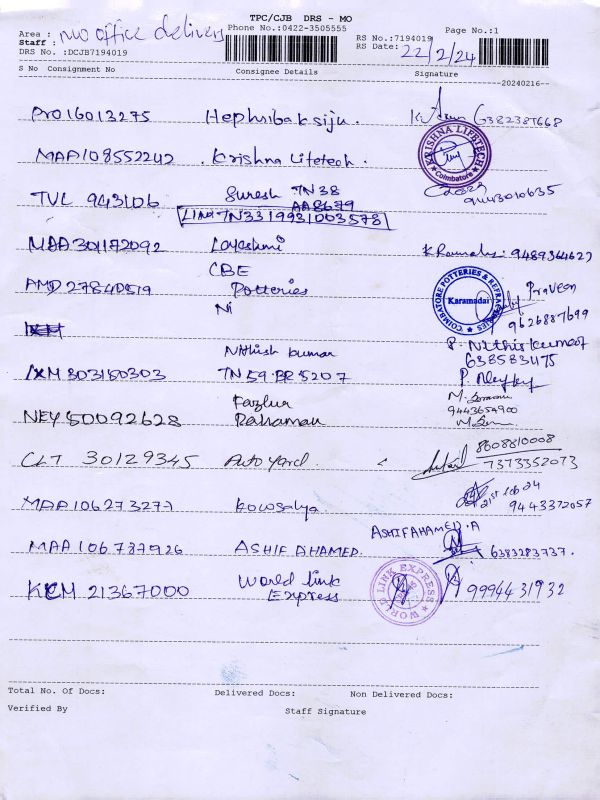 TPC/CJB DRS - MO
Phone No.:0422-3505555
Area : MO office delivery
Staff :
DRS No. :DCJB7194019
RS No.:7194019
RS Date: 22/2/24
Page No.:1
S No Consignment No Consignee Details Signature
20240216--
PRO16013275 Hephziba k siju. 6382387668
MAA108552242 Krishna Lifetech.
KRISHNA LIFETECH Coimbatore
TVL 943106 Suresh TN38
AA8679 9443010635
LIND TN33 19931003578
MAA301172092 Layeshmi 9489364627
CBE
AMD27840519 Potteries
Ni
COIMBATORE POTTERIES & REFRACTORIES Karamadai
Praveen
9626887699
Nithish kumar P. Nithiskumar
638583475
1XM303150303 TN 59 BR 5207
Fazlur
NEY50092628 Rahaman
9443654900
CLT 30129345 Auto yard. 8608810008
7373352073
MAA106273277 Kowsalya 21st Feb 24
9443372057
ASHIFAHAMED.A
MAA106787926 ASHIF AHAMED. 6383283737.
KCM 21367000 World link
Express 9994431932
WORLD LINK EXPRESS
Total No. Of Docs: Delivered Docs: Non Delivered Docs:
Verified By Staff Signature